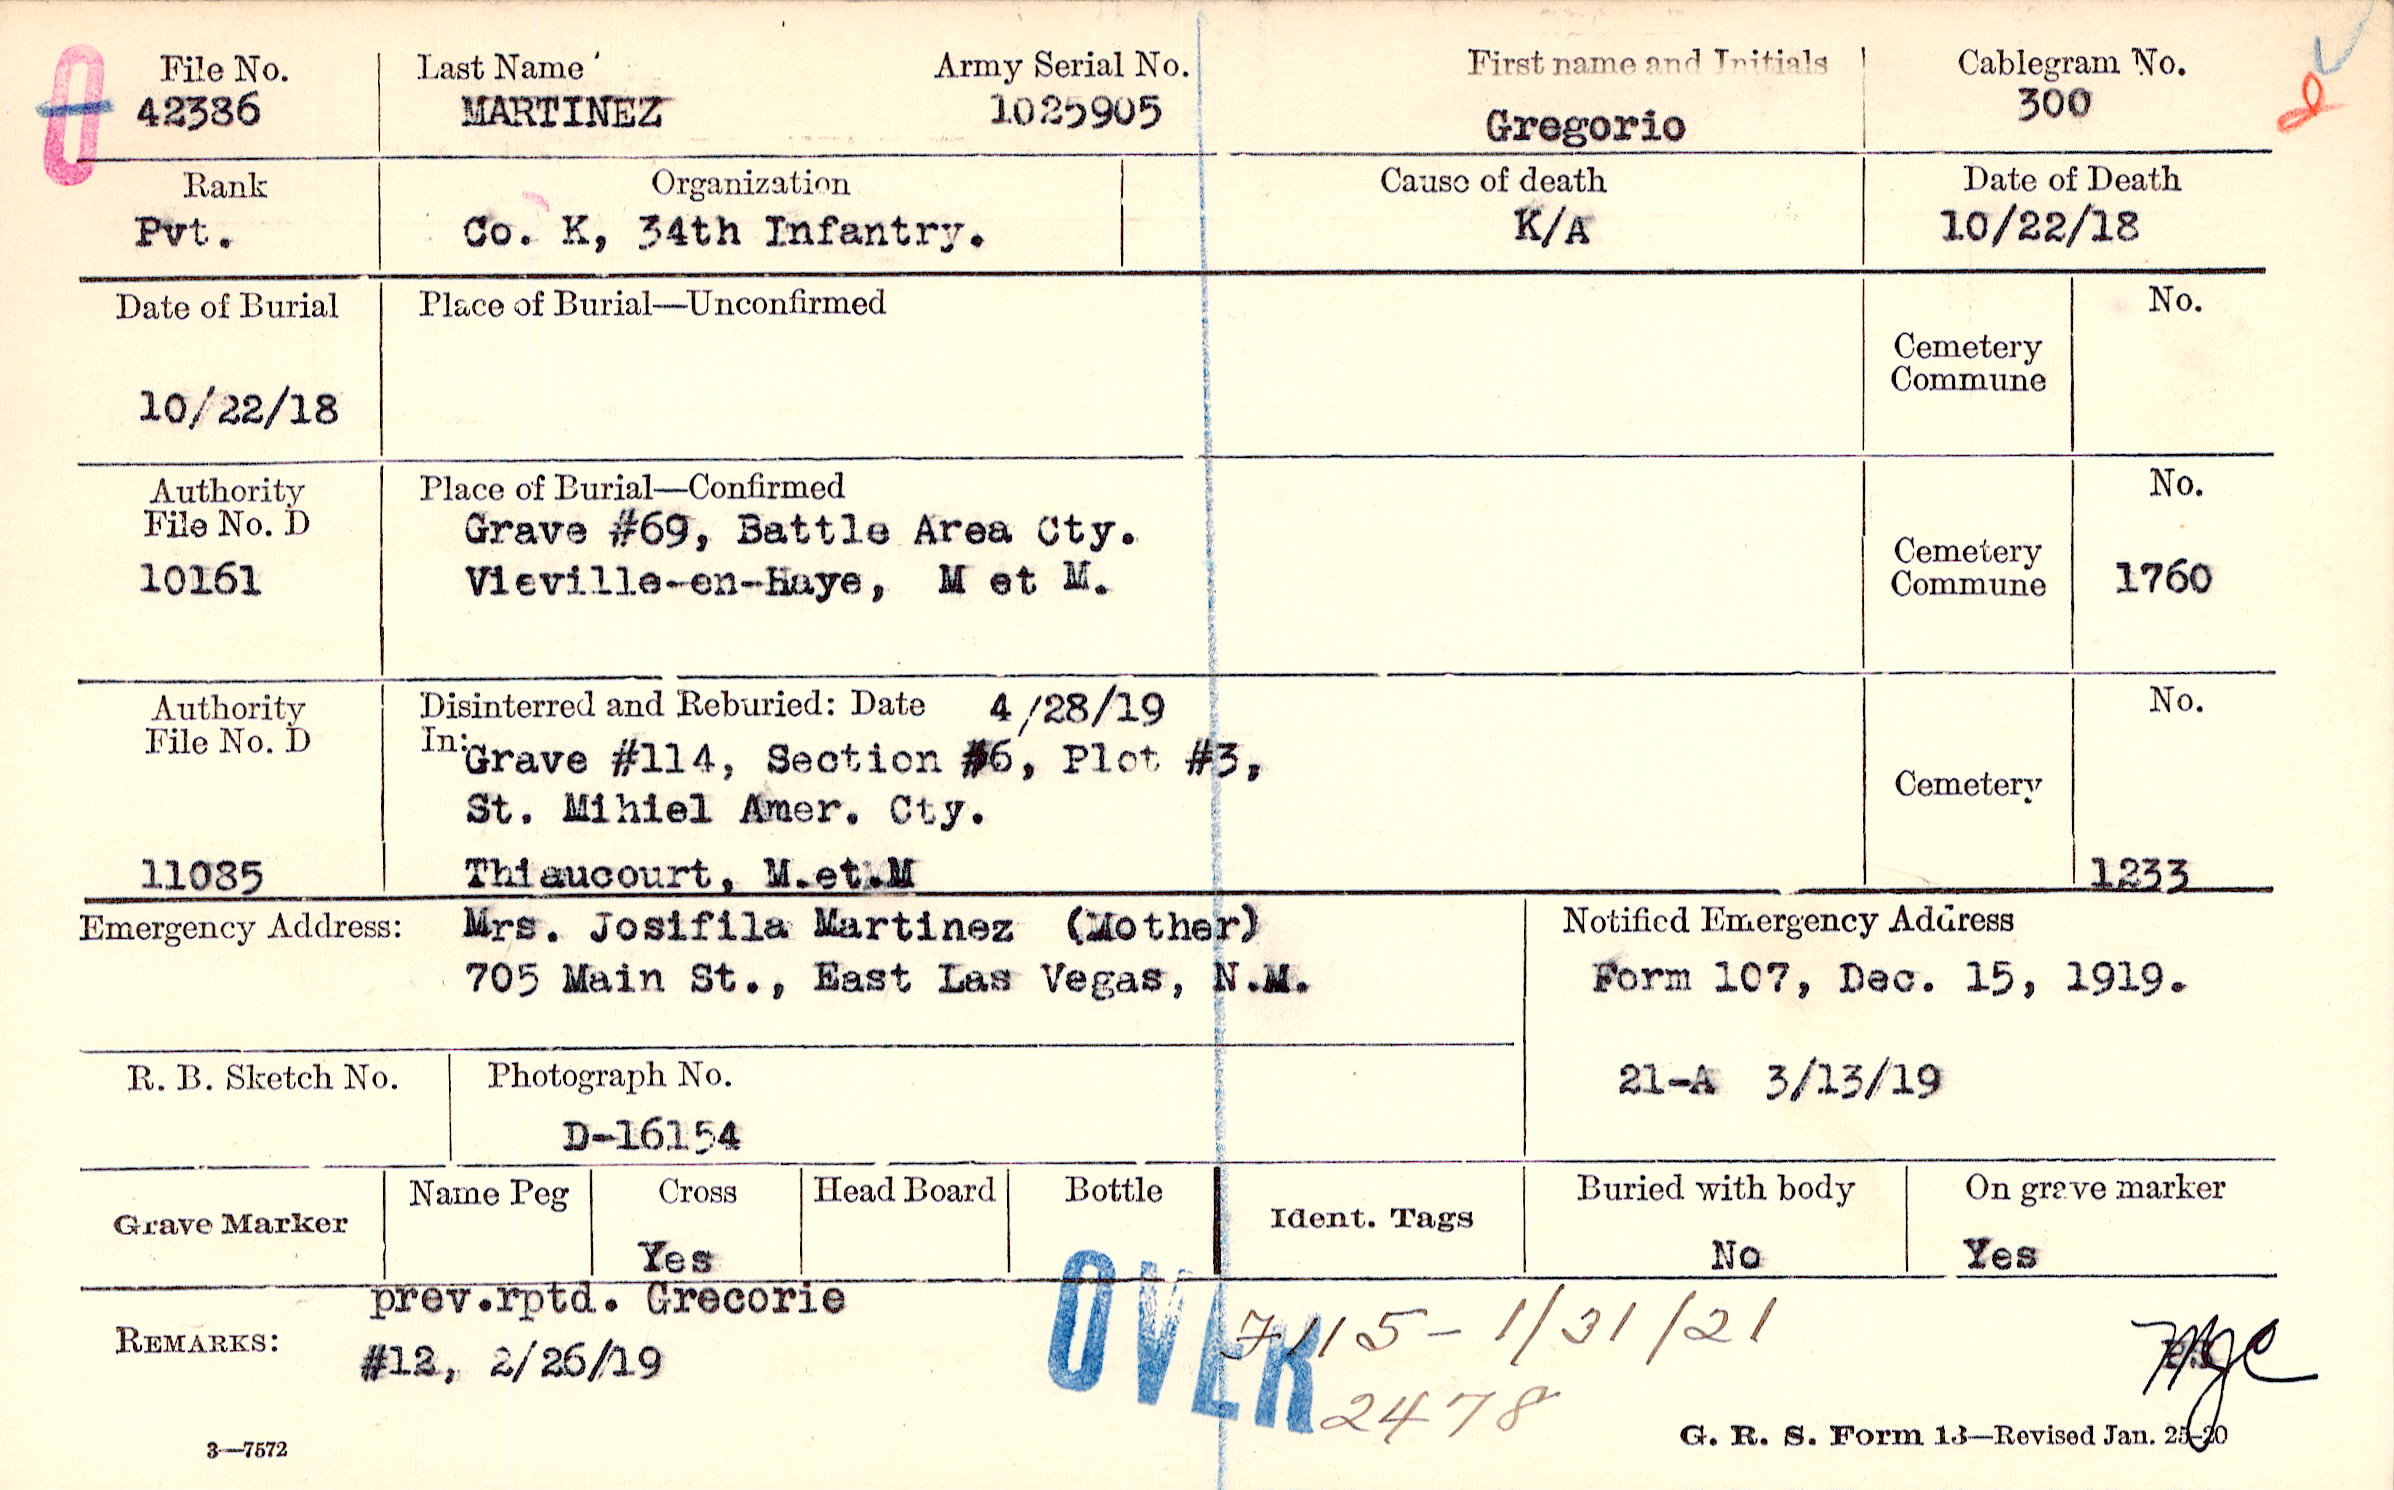 File No. Last Name Army Serial No. First name and Initials Cablegram No.
42386 MARTINEZ 1025905 Gregorio 300
Rank Organization Cause of death Date of Death
Pvt. Co. K, 34th Infantry. K/A 10/22/18
Date of Burial Place of Burial—Unconfirmed No.
Cemetery
Commune
10/22/18
Authority Place of Burial—Confirmed No.
File No. D Grave #69, Battle Area Cty. Cemetery
10161 Vieville-en-Haye, M et M. Commune 1760
Authority Disinterred and Reburied: Date 4/28/19 No.
File No. D In: Grave #114, Section #6, Plot #3,
St. Mihiel Amer. Cty. Cemetery
11085 Thiaucourt, M.et.M 1233
Emergency Address: Mrs. Josifila Martinez (Mother) Notified Emergency Address
705 Main St., East Las Vegas, N.M. Form 107, Dec. 15, 1919.
R. B. Sketch No. Photograph No. 21-A 3/13/19
D-16154
Grave Marker Name Peg Cross Head Board Bottle Ident. Tags Buried with body On grave marker
Yes No Yes
prev.rptd. Grecorie
REMARKS: OVER 7115-1/31/21
#12, 2/26/19
2478
3—7572 G. R. S. Form 13—Revised Jan. 25-20